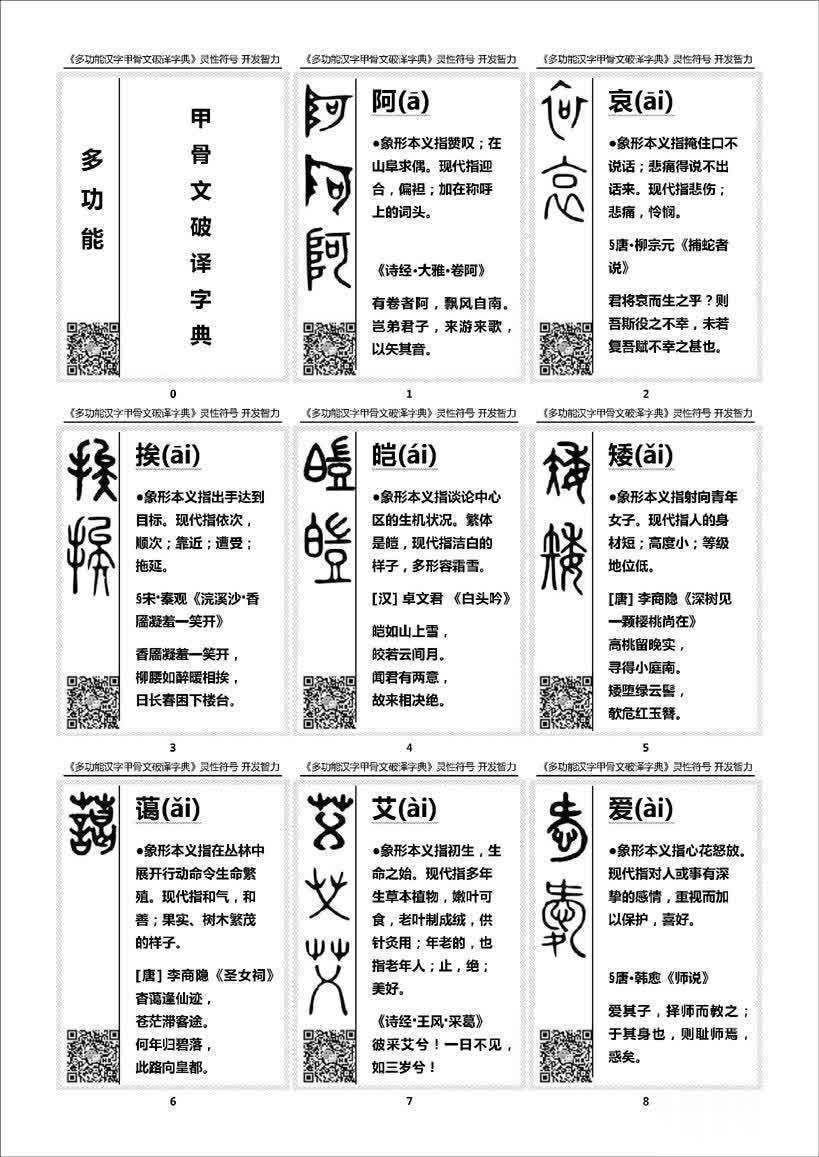 《多功能汉字甲骨文破译字典》灵性符号 开发智力
多功能
甲骨文破译字典
0
《多功能汉字甲骨文破译字典》灵性符号 开发智力
阿(ā)
●象形本义指赞叹；在
山阜求偶。现代指迎
合，偏袒；加在称呼
上的词头。
《诗经·大雅·卷阿》
有卷者阿，飘风自南。
岂弟君子，来游来歌，
以矢其音。
1
《多功能汉字甲骨文破译字典》灵性符号 开发智力
哀(āi)
●象形本义指掩住口不
说话；悲痛得说不出
话来。现代指悲伤；
悲痛，怜悯。
§唐·柳宗元《捕蛇者
说》
君将哀而生之乎？则
吾斯役之不幸，未若
复吾赋不幸之甚也。
2
《多功能汉字甲骨文破译字典》灵性符号 开发智力
挨(āi)
●象形本义指出手达到
目标。现代指依次，
顺次；靠近；遭受；
拖延。
§宋·秦观《浣溪沙·香
靥凝羞一笑开》
香靥凝羞一笑开，
柳腰如醉暖相挨，
日长春困下楼台。
3
《多功能汉字甲骨文破译字典》灵性符号 开发智力
皑(ái)
●象形本义指谈论中心
区的生机状况。繁体
是皚，现代指洁白的
样子，多形容霜雪。
[汉] 卓文君 《白头吟》
皑如山上雪，
皎若云间月。
闻君有两意，
故来相决绝。
4
《多功能汉字甲骨文破译字典》灵性符号 开发智力
矮(ǎi)
●象形本义指射向青年
女子。现代指人的身
材短；高度小；等级
地位低。
[唐] 李商隐《深树见
一颗樱桃尚在》
高桃留晚实，
寻得小庭南。
矮堕绿云髻，
欹危红玉簪。
5
《多功能汉字甲骨文破译字典》灵性符号 开发智力
蔼(ǎi)
●象形本义指在丛林中
展开行动命令生命繁
殖。现代指和气，和
善；果实、树木繁茂
的样子。
[唐] 李商隐《圣女祠》
杳蔼逢仙迹，
苍茫滞客途。
何年归碧落，
此路向皇都。
6
《多功能汉字甲骨文破译字典》灵性符号 开发智力
艾(ài)
●象形本义指初生，生
命之始。现代指多年
生草本植物，嫩叶可
食，老叶制成绒，供
针灸用；年老的，也
指老年人；止，绝；
美好。
《诗经·王风·采葛》
彼采艾兮！一日不见，
如三岁兮！
7
《多功能汉字甲骨文破译字典》灵性符号 开发智力
爱(ài)
●象形本义指心花怒放。
现代指对人或事有深
挚的感情，重视而加
以保护，喜好。
§唐·韩愈《师说》
爱其子，择师而教之；
于其身也，则耻师焉，
惑矣。
8